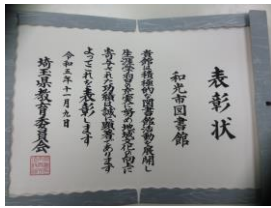 表彰状
和光市図書館
貴館は積極的な図書館活動を展開し
生涯学習の充実に努め地域文化の向上に
寄与された功績は誠に顕著であります
よってこれを表彰します
令和五年十一月九日
埼玉県教育委員会